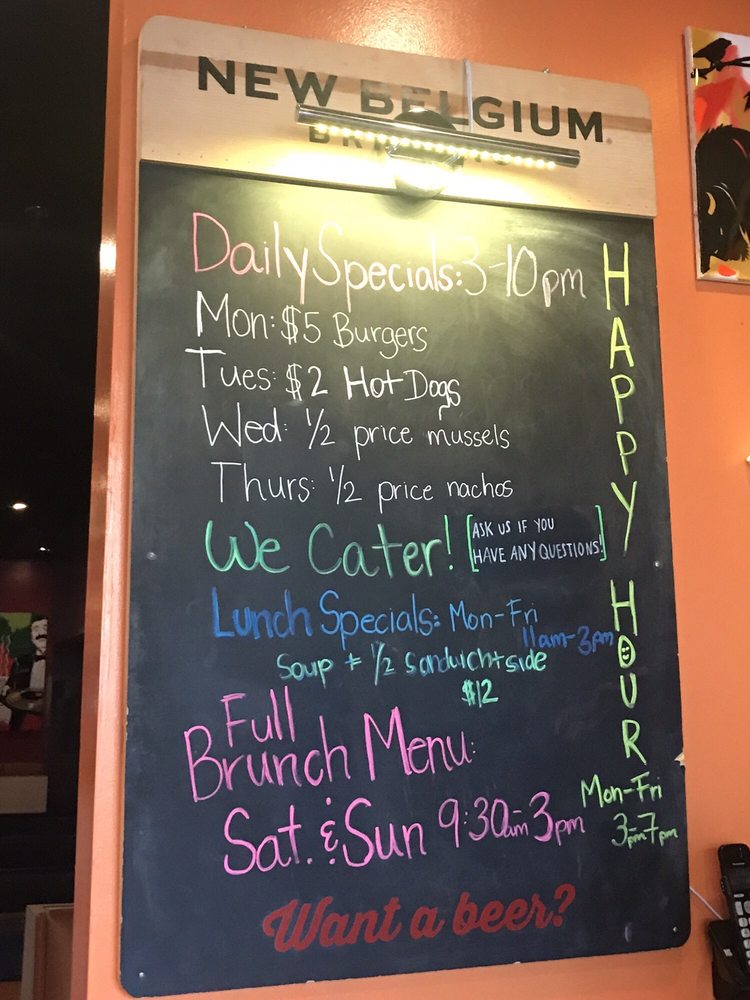 NEW BELGIUM
Daily Specials: 3-10pm
Mon: $5 Burgers
Tues: $2 Hot Dogs
Wed: 1/2 price mussels
Thurs: 1/2 price nachos
We Cater! [ASK US IF YOU
HAVE ANY QUESTIONS!]
Lunch Specials: Mon-Fri
11am-3pm
Soup + 1/2 Sandwich + side
$12
Full
Brunch Menu:
Sat. & Sun 9:30am-3pm
HAPPY HOUR
Mon-Fri
3pm-7pm
Want a beer?